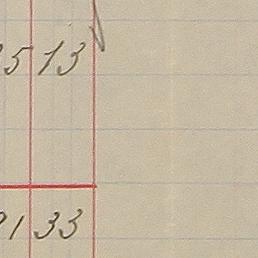 513
133